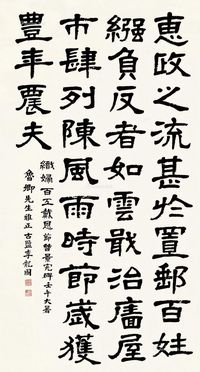 惠政之流甚於置郵百姓
繦負反者如雲戢治廧屋
市肆列陳風雨時節歲獲
豐年農夫
織婦百工戴恩 節曹景完碑 壬午大暑
魯卿先生雅正 古盩李